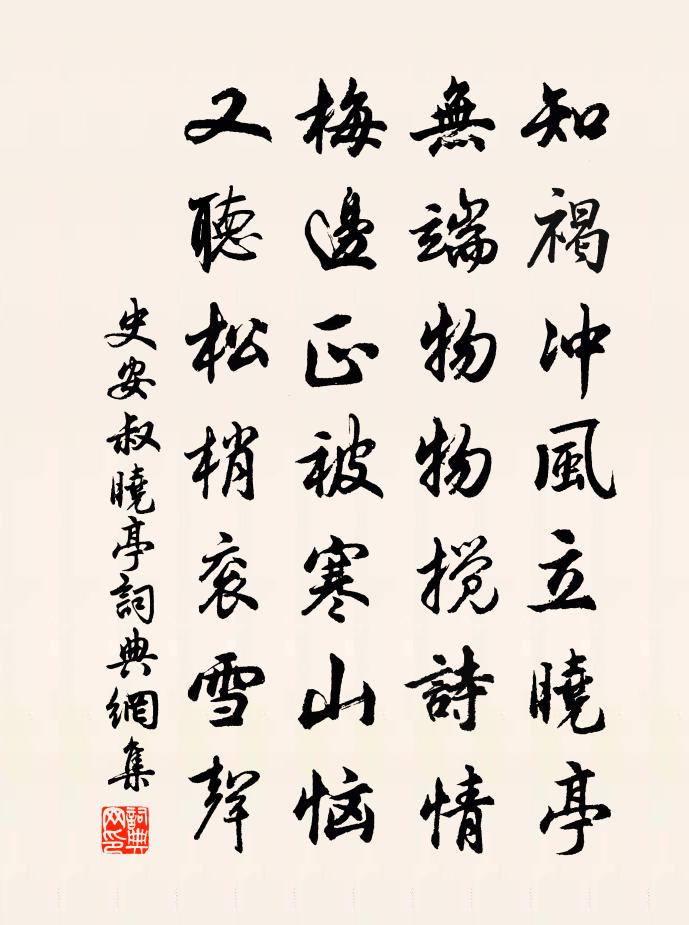 知褐冲風立曉亭
無端物物攪詩情
梅邊正被寒山恼
又聽松梢衮雪聲
史安叔曉亭詞典網集
詞典網印